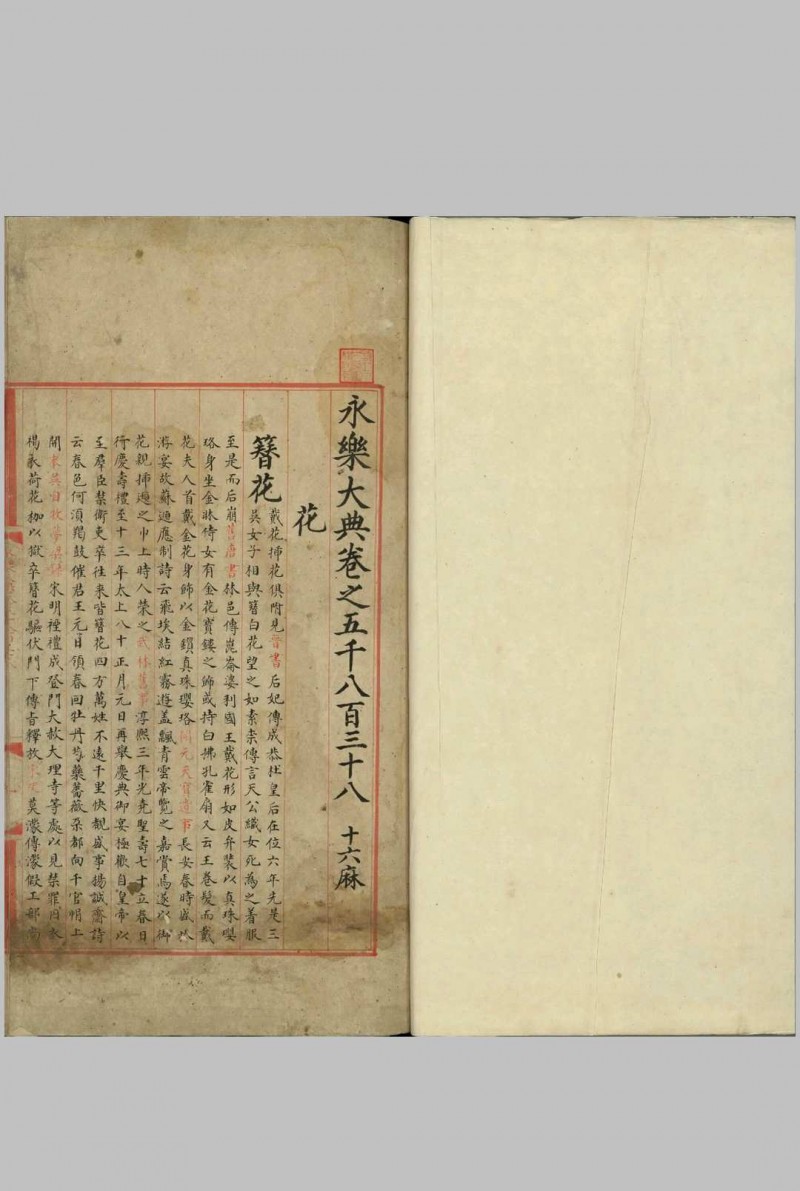 永樂大典卷之五千八百三十八 十六麻
花
簪花
戴花揷花俱附見晉書后妃傳成恭杜皇后在位六年先是三
吳女子相與簪白花望之如素柰傳言天公織女死為之着服
至是而后崩舊唐書林邑傳崑崙婆利國王戴花形如皮弁裝以真珠瓔
珞身坐金牀侍女有金花寶鏤之飾或持白拂孔雀扇又云王卷髮而戴
花夫人首戴金花身飾以金鎖真珠瓔珞開元天寶遺事長安春時盛於
游宴故蘇頲應制詩云飛埃結紅霧遊盖飄青雲帝覽之嘉賞焉遂以御
花親揷頲之巾上時人榮之武林舊事淳熙三年光堯聖壽七十立春日
行慶壽禮至十三年太上八十正月元日再舉慶典御宴極歡自皇帝以
至羣臣禁衛吏卒往来皆簪花四方萬姓不遠千里快覩盛事楊誠齋詩
云春色何湏羯鼓催君王元日領春囬牡丹芍藥薔薇朶都向千官帽上
開東
宋明禋禮成登門大赦大理寺等處以見禁罪囚衣
褐衣荷花枷以獄卒簪花驅伏門下傳旨釋放
莫濛傳濛假工部尚